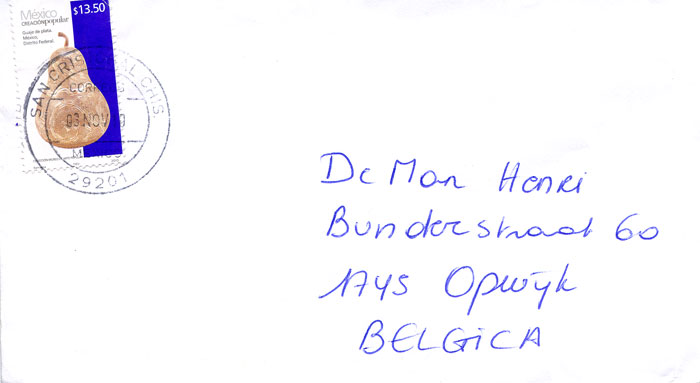 México
$13.50
CREACIÓN popular
Guaje de plata
México,
Distrito Federal
SAN CRISTOBAL CHIS.
CORREOS
03 NOV
29201
De Man Henri
Bunderstraat 60
1745 Opwijk
BELGICA